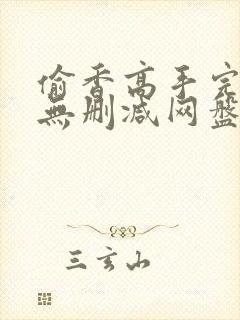 偷香高手完
無删减网盘
三玄山